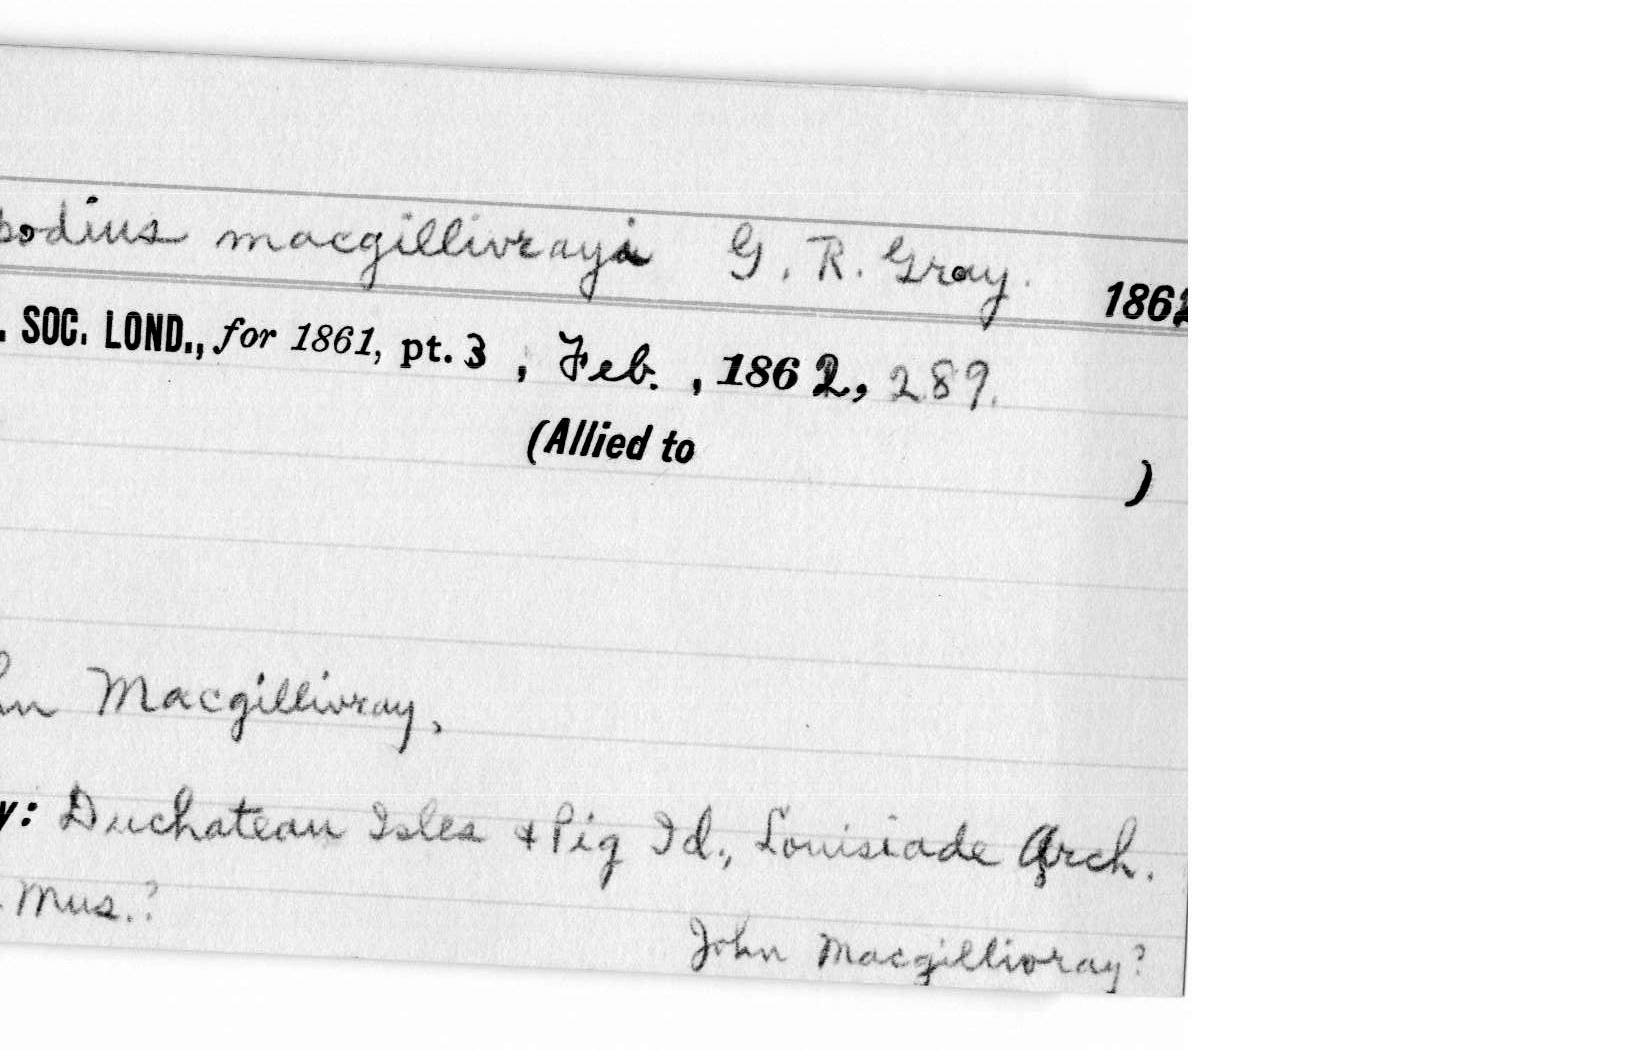 podius macgillivrayi G. R. Gray. 1862
. SOC. LOND., for 1861, pt. 3 , Feb. , 1862, 289.
(Allied to )
hn Macgillivray,
y: Duchateau Isles & Pig Id., Louisiade Arch.
. Mus.? John Macgillivray?